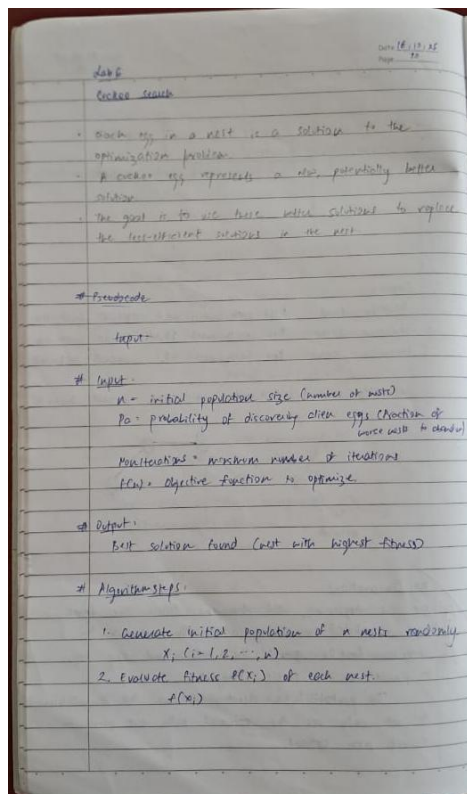 Date 16, 10, 25
Page
Lab 6
Cuckoo search
- Each egg in a nest is a solution to the
optimization problem.
- A cuckoo egg represents a new, potentially better
solution
- The goal is to use these better solutions to replace
the less-efficient solutions in the nest
# Pseudocode
Input-
# Input:
n - initial population size (number of nests)
Pa - probability of discovering alien eggs (fraction of
worse nests to abandon)
MaxIterations - maximum number of iterations
f(x) - Objective function to optimize
# Output:
Best solution found (nest with highest fitness)
# Algorithm steps:
1. Generate initial population of n nests randomly
Xi (i = 1, 2, ..., n)
2. Evaluate fitness f(Xi) of each nest.
f(xi)